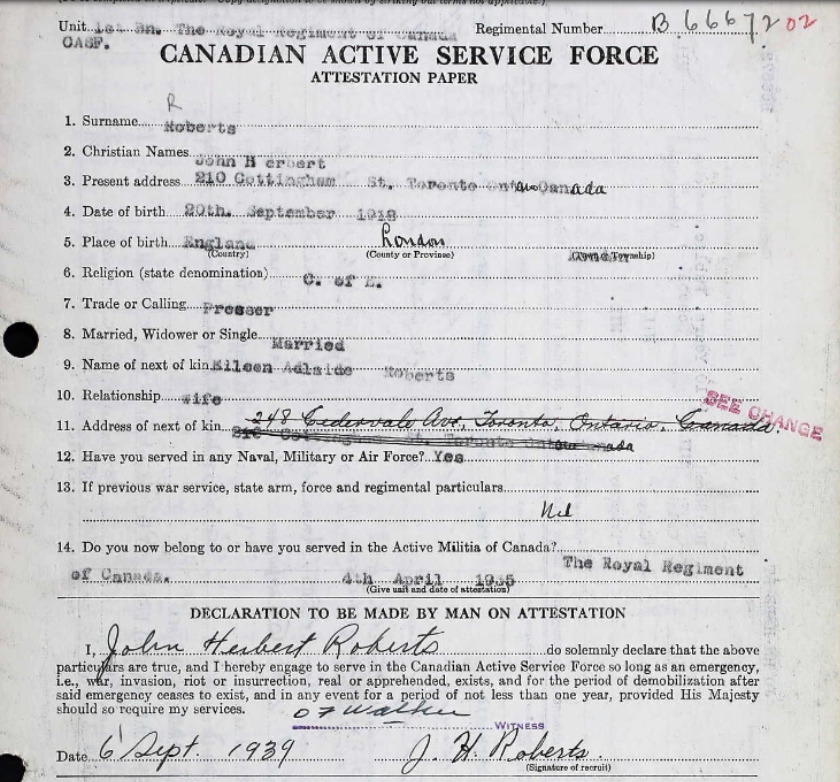 Unit 1st Bn. The Royal Regiment of Canada Regimental Number B 66672 02
CASF.
CANADIAN ACTIVE SERVICE FORCE
ATTESTATION PAPER
R
1. Surname Roberts
2. Christian Names John H erbert
3. Present address 210 Cottingham St. Toronto Canada
4. Date of birth 20th. September 1918
5. Place of birth England London
(Country) (County or Province) Township)
6. Religion (state denomination) C. of E.
7. Trade or Calling Presser
8. Married, Widower or Single Married
9. Name of next of kin Eileen Adlaide Roberts
10. Relationship wife
SEE CHANGE
11. Address of next of kin 248 Cedervale Ave, Toronto, Ontario, Canada.
210 Cottingham St. Toronto
12. Have you served in any Naval, Military or Air Force? Yes
13. If previous war service, state arm, force and regimental particulars
Nil
14. Do you now belong to or have you served in the Active Militia of Canada? The Royal Regiment
of Canada. 4th April 1935
(Give unit and date of attestation)
DECLARATION TO BE MADE BY MAN ON ATTESTATION
I, John Herbert Roberts do solemnly declare that the above
particulars are true, and I hereby engage to serve in the Canadian Active Service Force so long as an emergency,
i.e., war, invasion, riot or insurrection, real or apprehended, exists, and for the period of demobilization after
said emergency ceases to exist, and in any event for a period of not less than one year, provided His Majesty
should so require my services. Walker
WITNESS
Date 6 Sept. 1939 J. H. Roberts
(Signature of recruit)